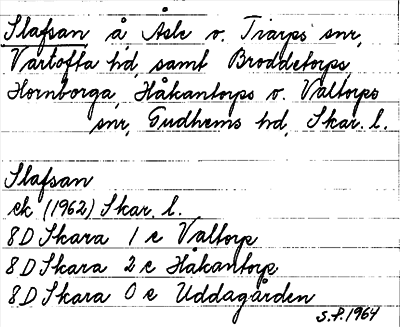 Slafsan å Åsle o. Tiarps snr,
Vartofta hd, samt Broddetorps,
Hornborga, Håkantorps o. Valtorps
snr, Gudhems hd, Skar. l.
Slafsan
ek (1962) Skar. l.
8D Skara 1 c Valtorp
8D Skara 2 c Håkantorp
8D Skara 0 e Uddagården
S.P. 1964